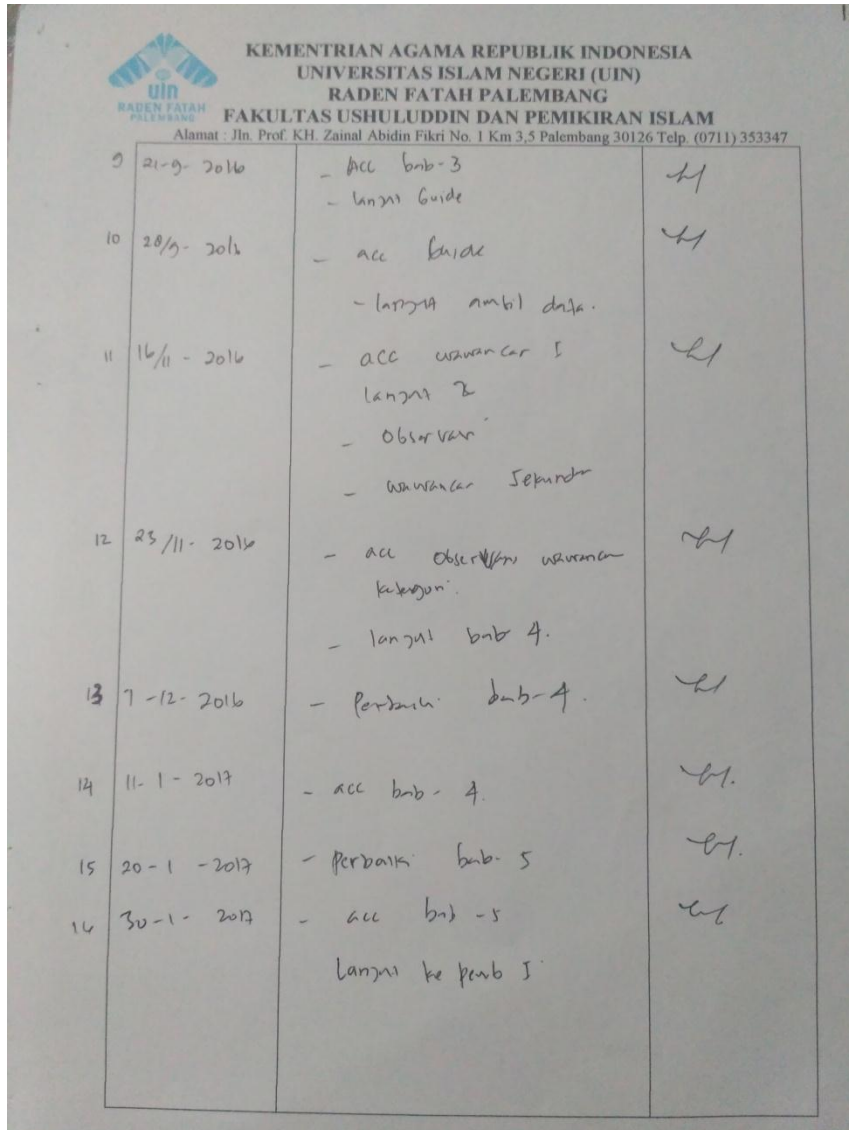 uin
RADEN FATAH
PALEMBANG
KEMENTRIAN AGAMA REPUBLIK INDONESIA
UNIVERSITAS ISLAM NEGERI (UIN)
RADEN FATAH PALEMBANG
FAKULTAS USHULUDDIN DAN PEMIKIRAN ISLAM
Alamat : Jln. Prof. KH. Zainal Abidin Fikri No. 1 Km 3,5 Palembang 30126 Telp. (0711) 353347
9 21-9-2016 - Acc bab-3
- lanjut Guide
10 28/9- - acc Guide
- lanjut ambil data.
11 16/11 - 2016 - acc wawancar I
lanjut 2
- Observasi
- wawancar Sekunder
12 23/11- 2016 - acc Observasi wawancar
- lanjut bab 4.
13 7-12-2016 - Perbaiki bab-4.
14 11-1-2017 - acc bab-4.
15 20-1-2017 - perbaiki bab-5
16 30-1-2017 - acc bab-5
lanjut ke pemb I